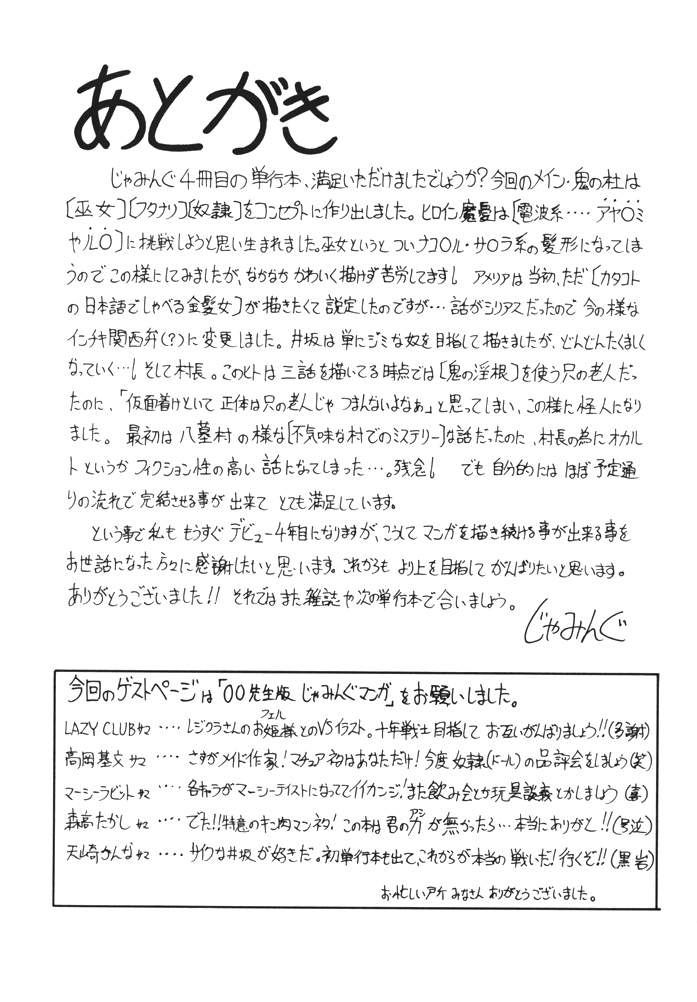 あとがき
じゃみんぐ4冊目の単行本、満足いただけましたでしょうか?今回のメイン・鬼の杜は
[巫女][フタナリ][奴隷]をコンセプトに作り出しました。ヒロイン魔憂は[電波系‥‥アヤ○ミ
やルO]に挑戦しようと思い生まれました。巫女というと ついナコ○ル・サ○ラ系の髪形になってしま
うので この様にしてみましたが、なかなか かわいく描けず苦労してます! アメリアは当初、ただ[カタコト
の日本語でしゃべる金髪女]が描きたくて設定したのですが…話がシリアスだったので 今の様な
インチキ関西弁(?)に変更しました。井坂は単にジミな奴を目指して描きましたが、どんどんたくましく
なっていく…! そして村長。このヒトは三話を描いてる時点では[鬼の淫根]を使う只の老人だっ
たのに、「仮面着けといて 正体は只の老人じゃ つまんないよなぁ」と思ってしまい、この様に怪人になり
ました。最初は八墓村の様な[不気味な村でのミステリー]な話だったのに、村長の為にオカル
トというか フィクション性の高い話になってしまった…。残念! でも自分的には ほぼ予定通
りの流れで完結させる事が出来て とても満足しています。
という事で私も もうすぐデビュー4年目になりますが、こうして マンガを描き続ける事が出来る事を
お世話になった方々に感謝したいと思います。これからも より上を目指して がんばりたいと思います。
ありがとうございました!! それではまた雑誌や次の単行本で合いましょう。
じゃみんぐ
今回のゲストページは「○○先生版 じゃみんぐマンガ」をお願いしました。
LAZY CLUBサマ ‥‥ レジクラさんのお姫様とのVSイラスト。十年戦士目指して お互いがんばりましょう!!(多謝)
フェル
高岡基文サマ ‥‥ さすがメイド作家!マチュア初はあなただけ!今度 奴隷(ドール)の品評会をしましょう(笑)
マーシーラビットサマ ‥‥ 各キャラがマーシーテイストになっててイイカンジ!また飲み会とか玩具談義とかしましょう(喜)
森高たかしサマ ‥‥ でた!!特意のキン肉マンネタ!この本は君の力が無かったら…本当にありがと!!(号泣)
アシ
天崎かんなサマ ‥‥ サイクな井坂が好きだ。初単行本も出て、これからが本当の戦いだ!行くぞ!!(黒岩)
お忙しい所 みなさん ありがとうございました。